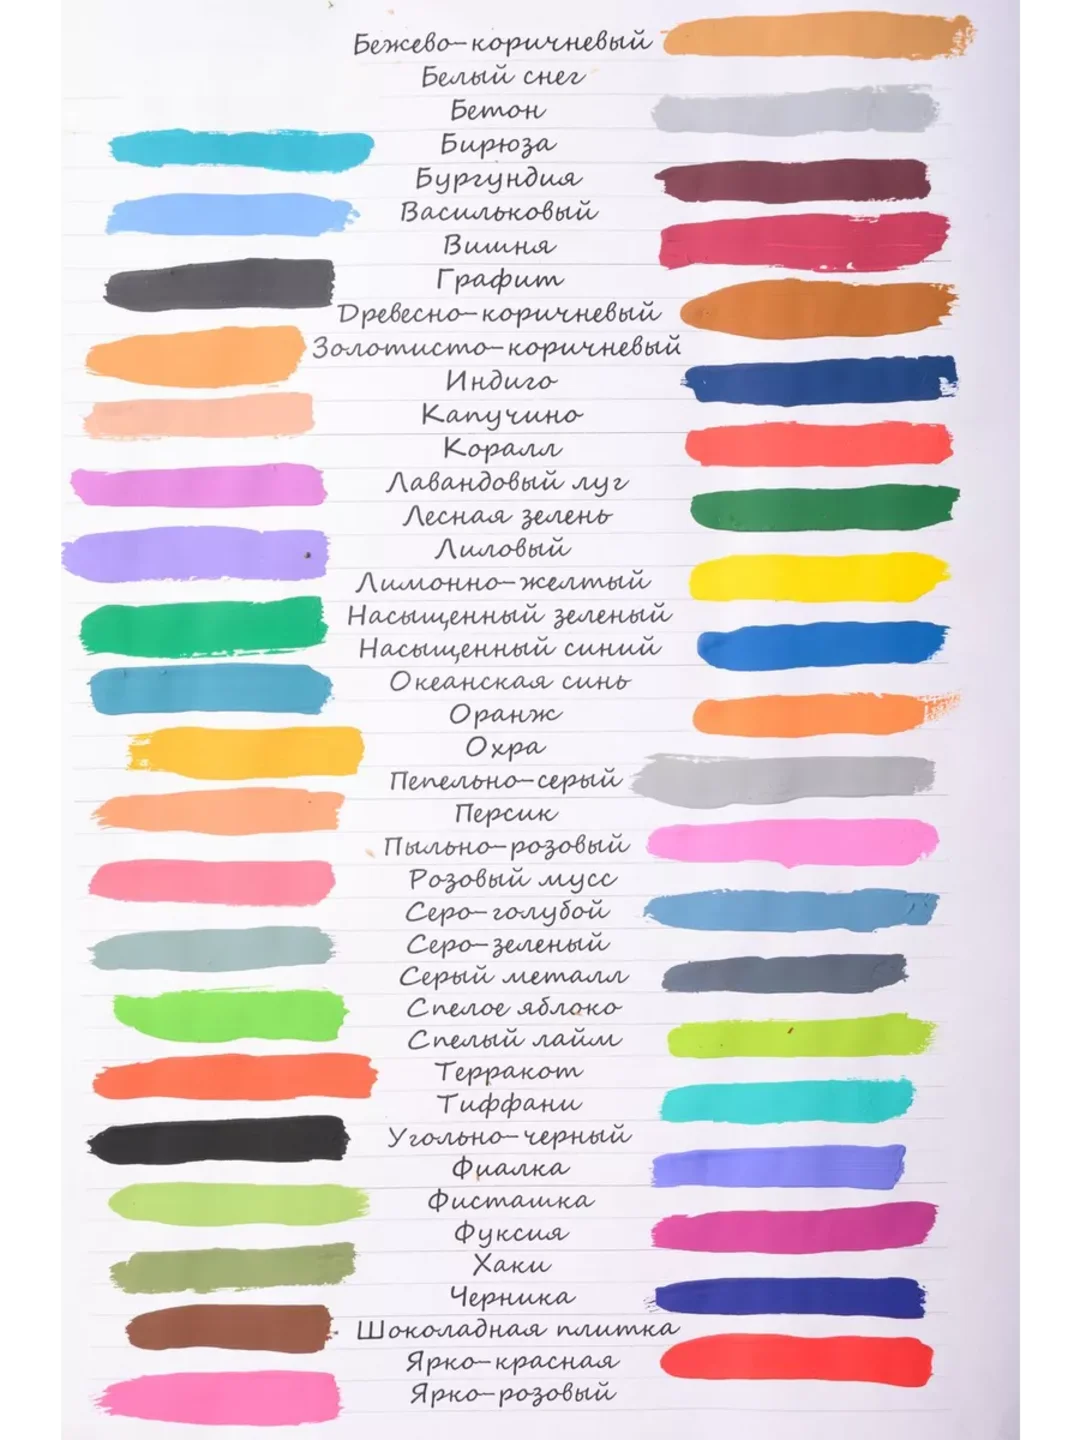 Бежево-коричневый
Белый снег
Бетон
Бирюза
Бургундия
Васильковый
Вишня
Графит
Древесно-коричневый
Золотисто-коричневый
Индиго
Капучино
Коралл
Лавандовый луг
Лесная зелень
Лиловый
Лимонно-желтый
Насыщенный зеленый
Насыщенный синий
Океанская синь
Оранж
Охра
Пепельно-серый
Персик
Пыльно-розовый
Розовый мусс
Серо-голубой
Серо-зеленый
Серый металл
Спелое яблоко
Спелый лайм
Терракот
Тиффани
Угольно-черный
Фиалка
Фисташка
Фуксия
Хаки
Черника
Шоколадная плитка
Ярко-красная
Ярко-розовый